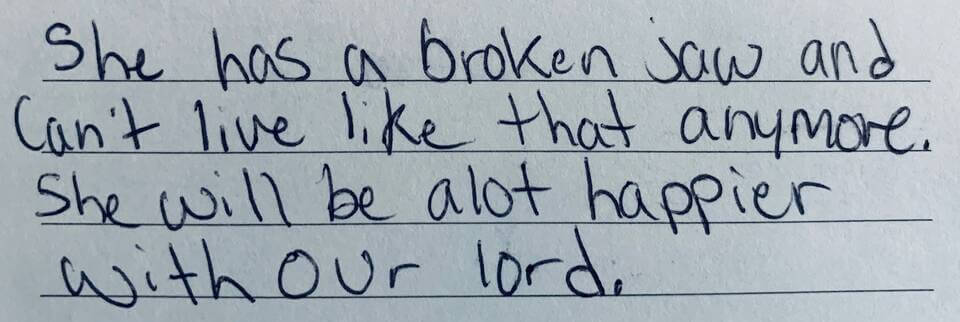 She has a broken jaw and
Can't live like that anymore.
She will be alot happier
with our lord.